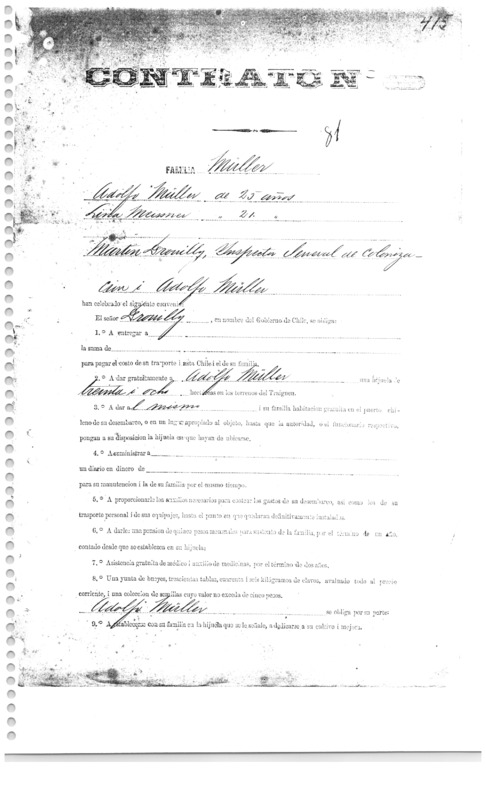 415
CONTRATO Nº
81
FAMILIA Müller
Adolfo Müller de 25 años
Meissner " 21 "
Martin Drouilly, Inspector Jeneral de Coloniza-
cion i Adolfo Müller
han celebrado el siguiente convenio:
El señor Drouilly, en nombre del Gobierno de Chile, se obliga:
1.º A entregar a
la suma de
para pagar el costo de su trasporte i hasta Chile i el de su familia.
2.º A dar gratuitamente a Adolfo Müller una hijuela de
treinta i ocho hectáreas en los terrenos del Traiguen.
3.º A dar al mismo i su familia habitacion gratuita en el puerto chi-
leno de su desembarco, o en un lugar apropiado al objeto, hasta que la autoridad, o el funcionario respectivo,
pongan a su disposicion la hijuela en que hayan de ubicarse.
4.º A suministrar a
un diario en dinero de
para su manutencion i la de su familia por el mismo tiempo.
5.º A proporcionarle los ausilios necesarios para costear los gastos de su desembarco, así como los de su
trasporte personal i de sus equipajes, hasta el punto en que quedaran definitivamente instalados.
6.º A darle una pension de quince pesos mensuales para sustento de la familia, por el término de un año,
contado desde que se establezca en su hijuela;
7.º Asistencia gratuita de médico i ausilio de medicinas, por el término de dos años.
8.º Una yunta de bueyes, trescientas tablas, cuarenta i seis kilógramos de clavos, avaluado todo al precio
corriente, i una coleccion de semillas cuyo valor no esceda de cinco pesos.
Adolfo Müller se obliga por su parte:
9.º A establecerse con su familia en la hijuela que se le señale, a dedicarse a su cultivo i mejora.